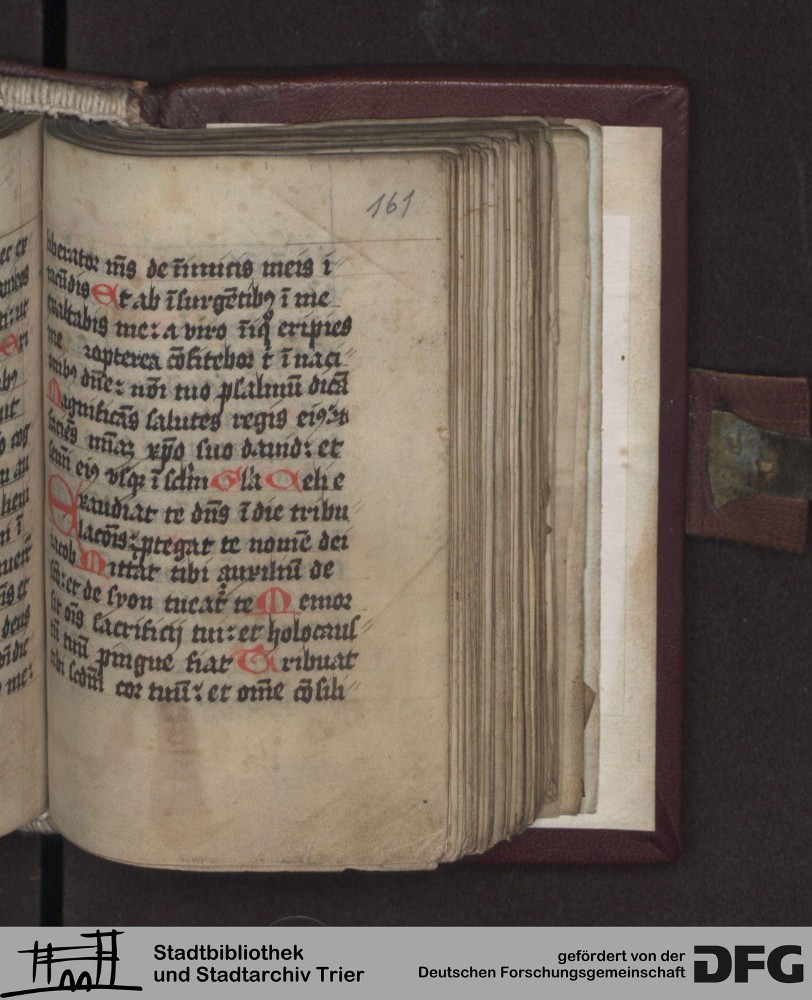 161
liberator m̅s de i̅imicis meis i
racu̅dis Et ab i̅surge̅tibꝯ i̅ me
exaltabis me: a viro i̅iqͦ eripies
me ropterea co̅fitebor t͛ i̅ naci
onibꝯ dn̅e: no̅i tuo psalmu̅ dica̅
Magnifica̅s salutes regis eiꝯ: et
facie̅s mi̅am xp̅o suo dauid: et
semi̅ eiꝯ vsqꝫ i̅ sclm̅ Gl̅a Oeh e
Exaudiat te dn̅s i̅ die tribu
laco̅is: ꝓtegat te nome̅ dei
iacob Mittat tibi auxiliu̅ de
sc̅o: et de syon tueat͛ te Memor
sit o̅is sacrificij tui: et holocaus
tu̅ tuu̅ pingue fiat Tribuat
tibi scd̅m cor tuu̅: et om̅e co̅sili
Stadtbibliothek
und Stadtarchiv Trier
gefördert von der
Deutschen Forschungsgemeinschaft
DFG